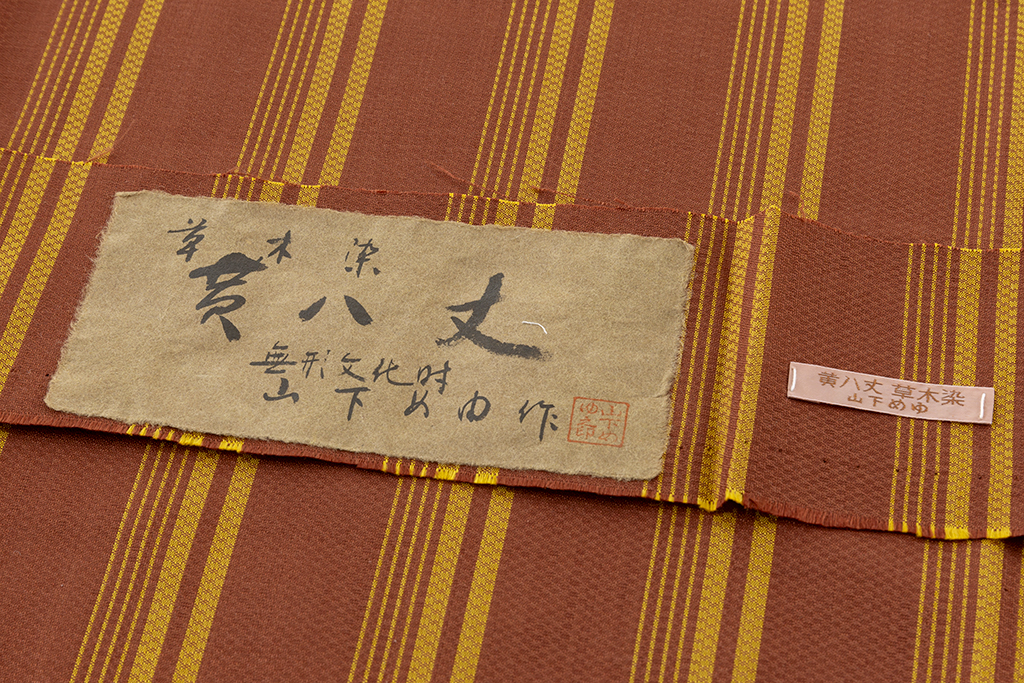 草木染
黄八丈
無形文化財
山下めゆ作
黄八丈 草木染
山下めゆ